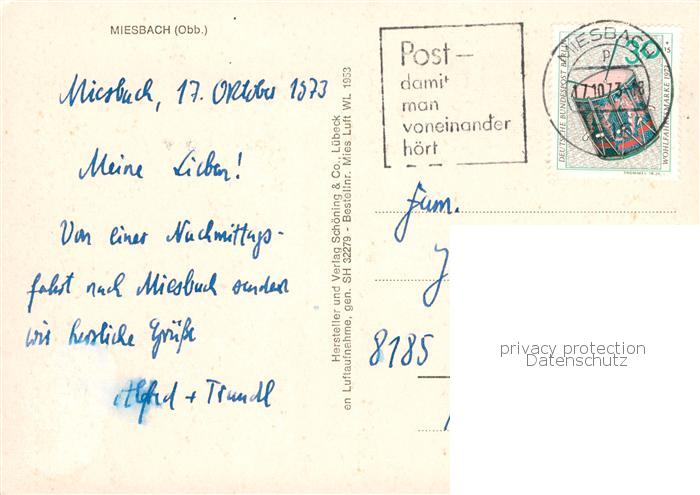 MIESBACH (Obb.)
Miesbach, 17. Oktober 1973
Meine Lieben!
Von einer Nachmittags-
fahrt nach Miesbach senden
wir herzliche Grüße
Alfred + Traudl
Hersteller und Verlag Schöning & Co., Lübeck
en Luftaufnahme, gen. SH 32279 - Bestellnr. Mies Luft WL 1953
Post –
damit
man
voneinander
hört
MIESBACH
17.10.73-18
30
DEUTSCHE BUNDESPOST BERLIN
WOHLFAHRTSMARKE 1973
Fam.
8185
privacy protection
Datenschutz